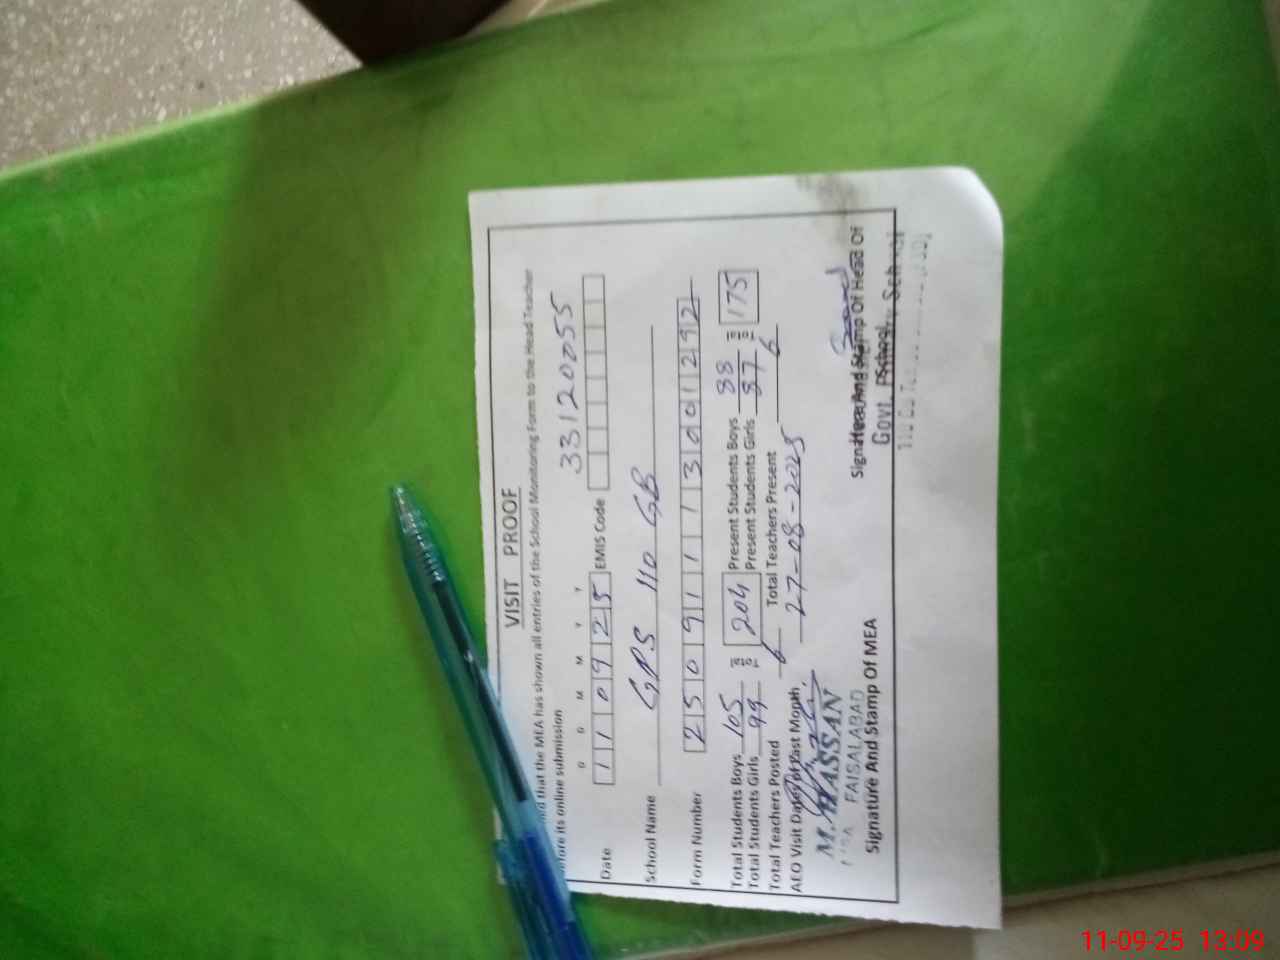 VISIT PROOF
d that the MEA has shown all entries of the School Monitoring Form to the Head Teacher
before its online submission
D D M M Y Y
Date 110925 EMIS Code 33120055
School Name GPS 110 GB
Form Number 25091113001292
Total Students Boys 105 204 Present Students Boys 88 175
Total Students Girls 99 Present Students Girls 87
Total Teachers Posted 6 Total Teachers Present 6
AEO Visit Date of Past Month 27-08-2025
M. HASSAN
FAISALABAD
Signature And Stamp Of MEA
Signature And Stamp Of Head Of School
Govt.
11-09-25 13:09